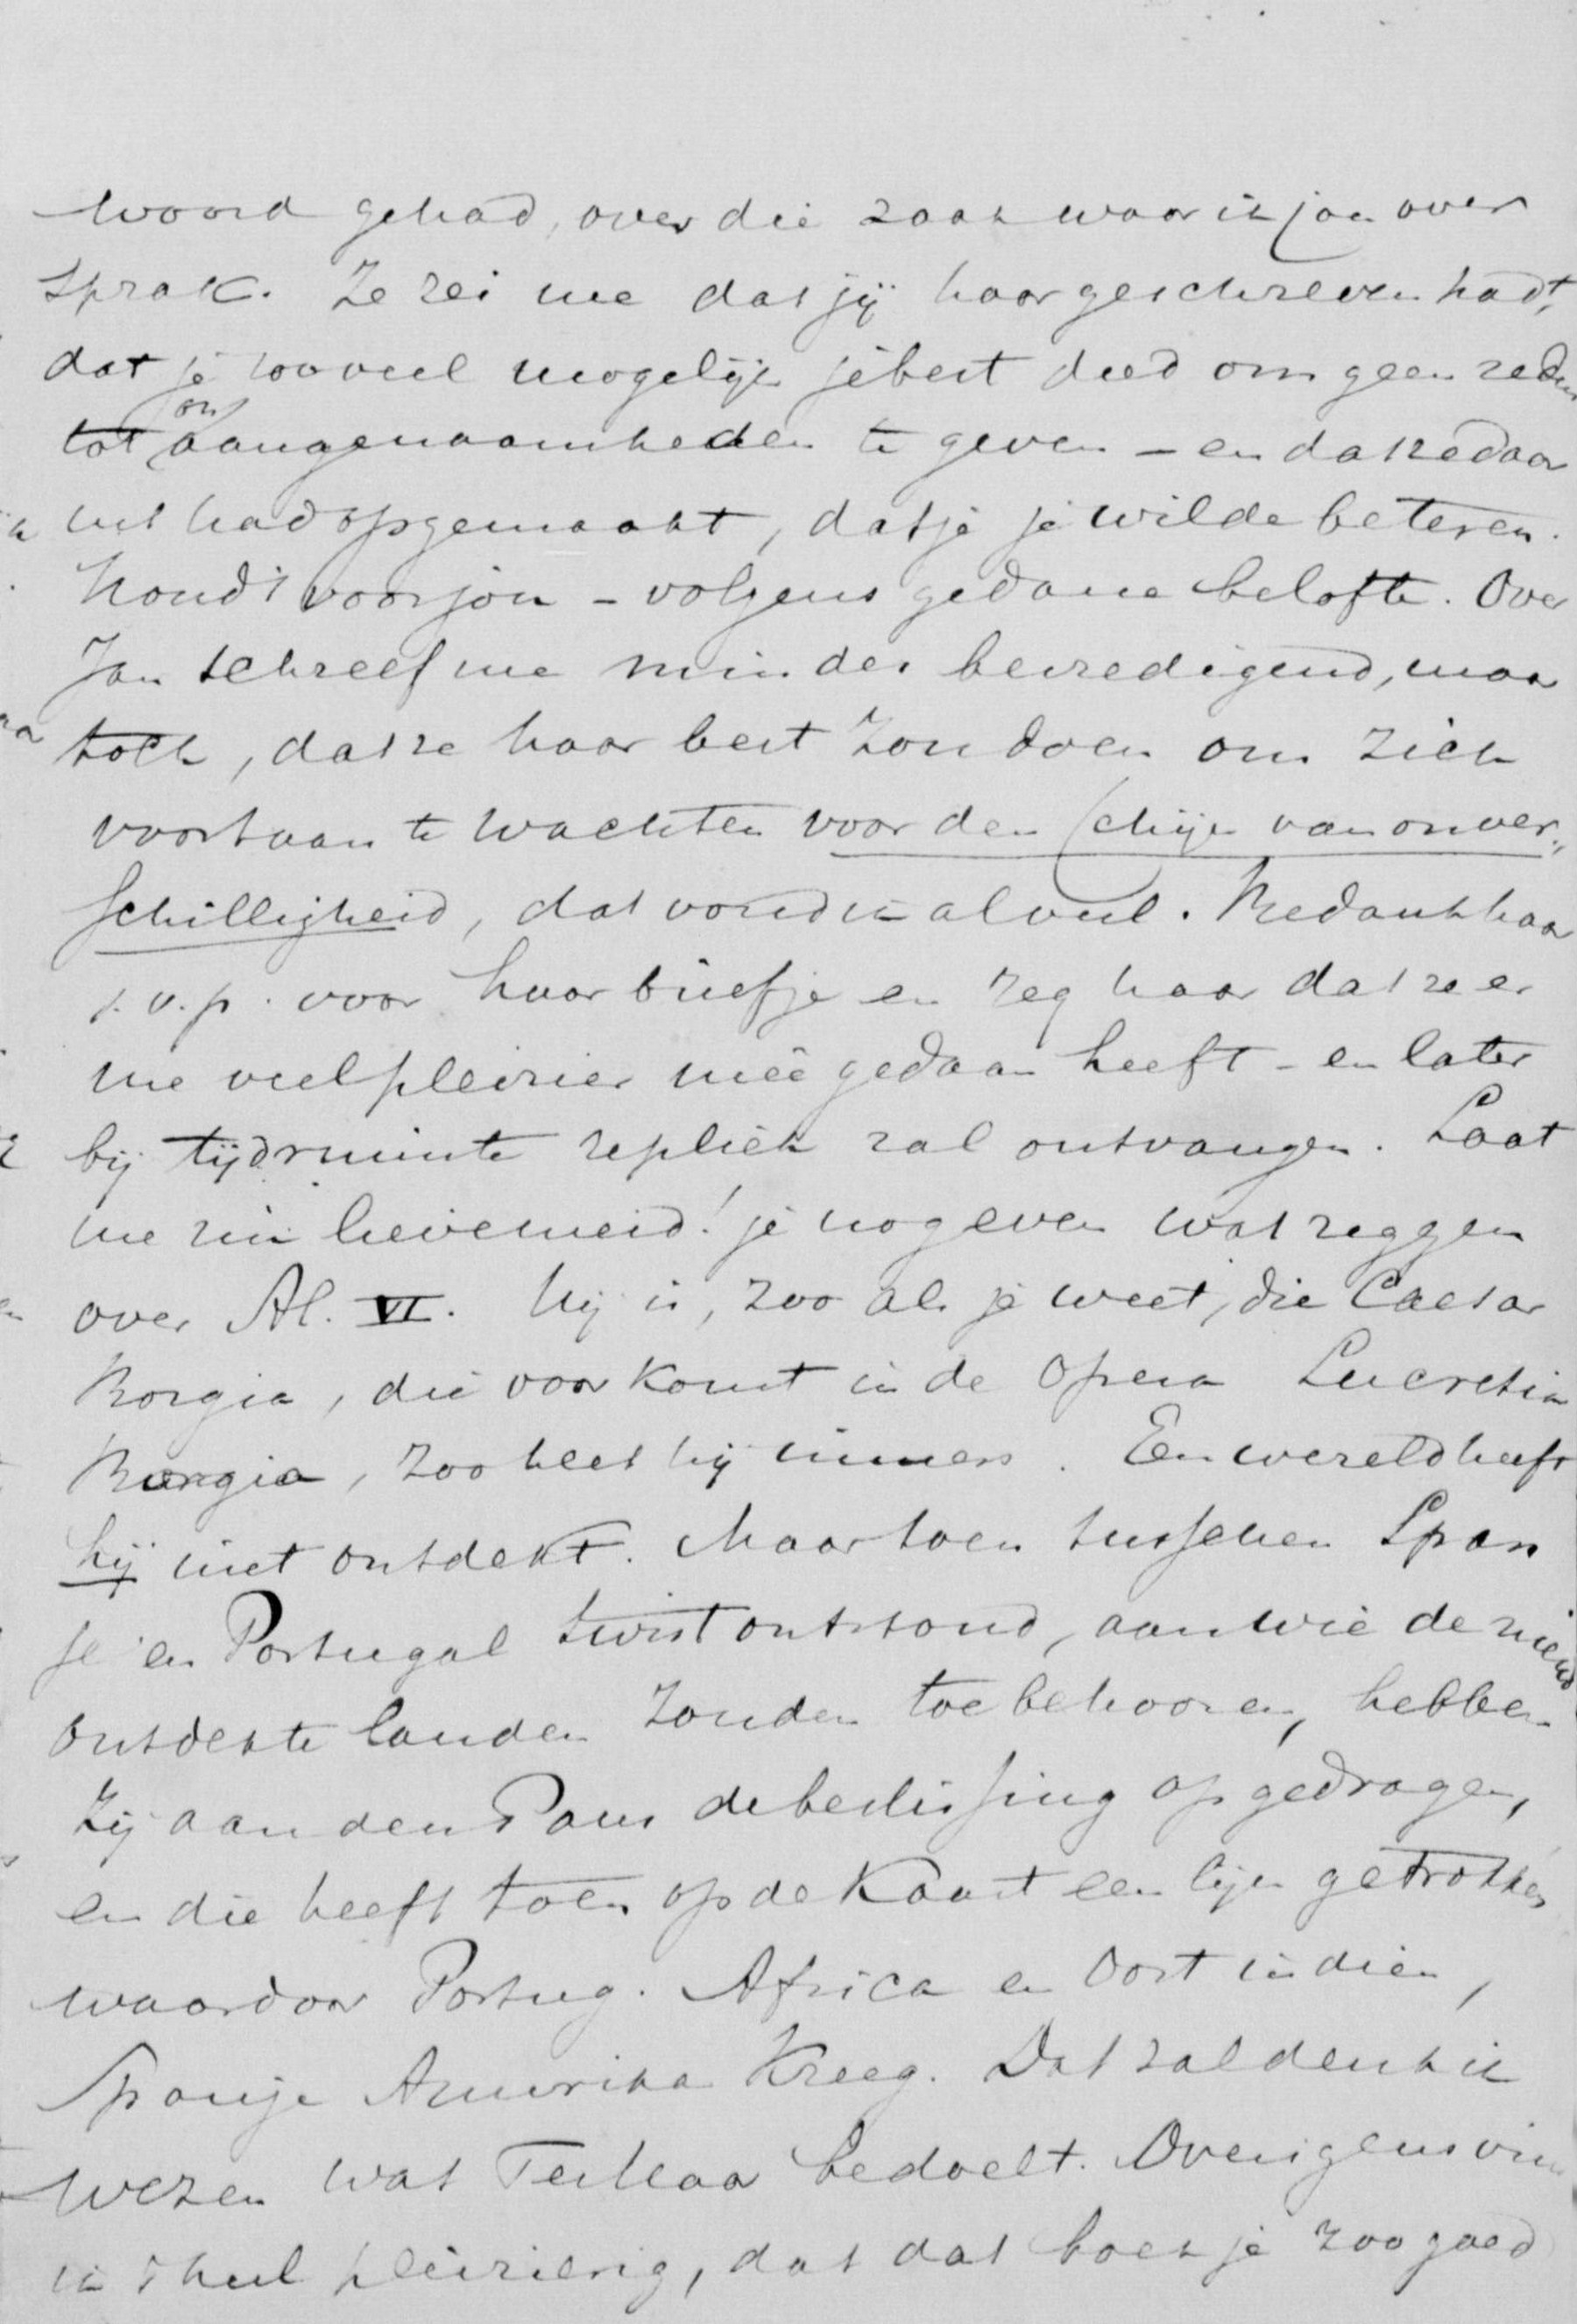 woord gehad, over die zaak waar ik jou over
sprak. Ze zei me dat jij haar geschreven hadt,
dat je zooveel mogelijk je best deed om geen reden
tot onaangenaamheden te geven – en dat ze daar
uit had opgemaakt, dat je je wilde beteren.
Houdt voor jou – volgens gedane belofte. Over
Jan schreef me minder bevredigend, maar
toch, dat ze haar best zou doen om zich
voortaan te wachten voor den schijn van onver„
schilligheid, dat vond ik al veel. Bedank haar
s.v.p. voor haar briefje en zeg haar dat ze er
me veel pleizier meê gedaan heeft – en later
bij tijdruimte repliek zal ontvangen. Laat
me lieve meid! je nog even wat zeggen
over Al. VI. Hij is, zoo als je weet, die Caesar
Borgia, die voorkomt in de opera Lucretia
Borgia, zoo heet hij immers. Een wereld heeft
hij niet ontdekt. Maar toen tusschen Span
je en Portugal twist ontstond, aan wie de nieuw
ontdekte landen zouden toebehooren, hebben
zij aan den Paus de beslissing opgedragen,
en die heeft toen op de Kaart een lijn getrokken
waardoor Portug. Africa en Oost indien,
Spanje Amerika Kreeg. Dat zal denk ik
wezen wat Ter Haar bedoelt. Overigens vin
ik 't heel pleizierig, dat dat boekje zoo goed